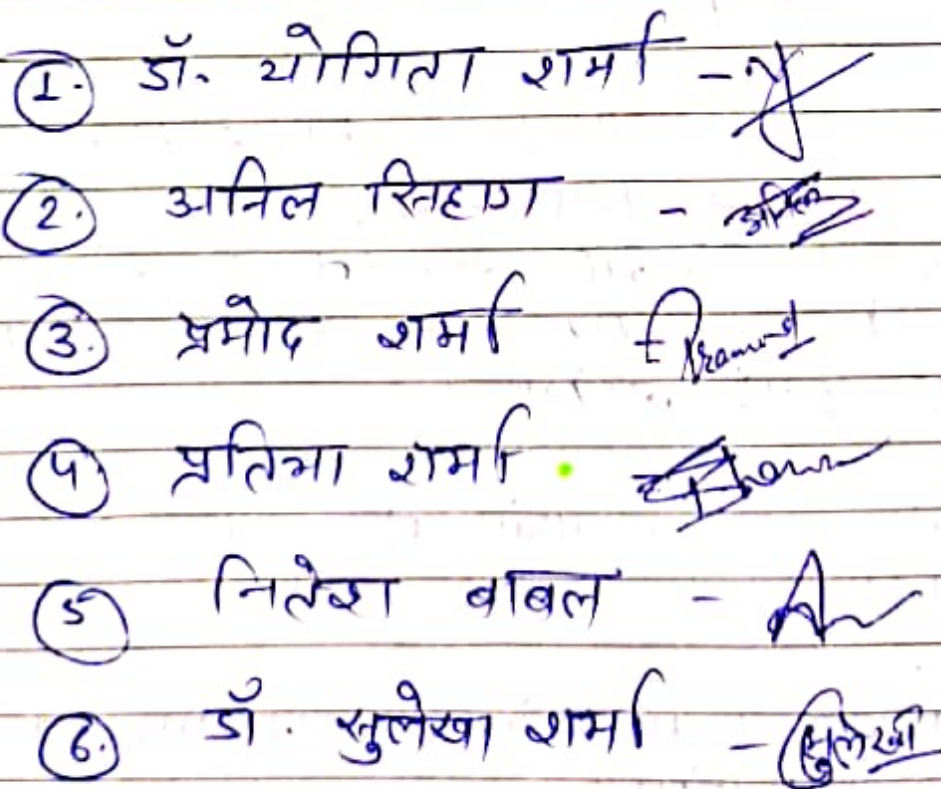 1. डॉ. योगिता शर्मा -
2. अनिल सिहाग -
3. प्रमोद शर्मा - Pramod
4. प्रतिभा शर्मा
5 नितेश बाबल -
6. डॉ. सुलेखा शर्मा - सुलेखा